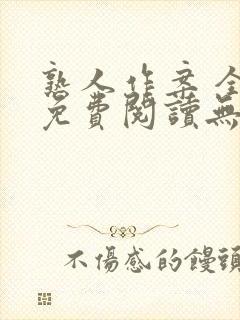 熟人作案全
免費閱讀無
不傷感的饅頭